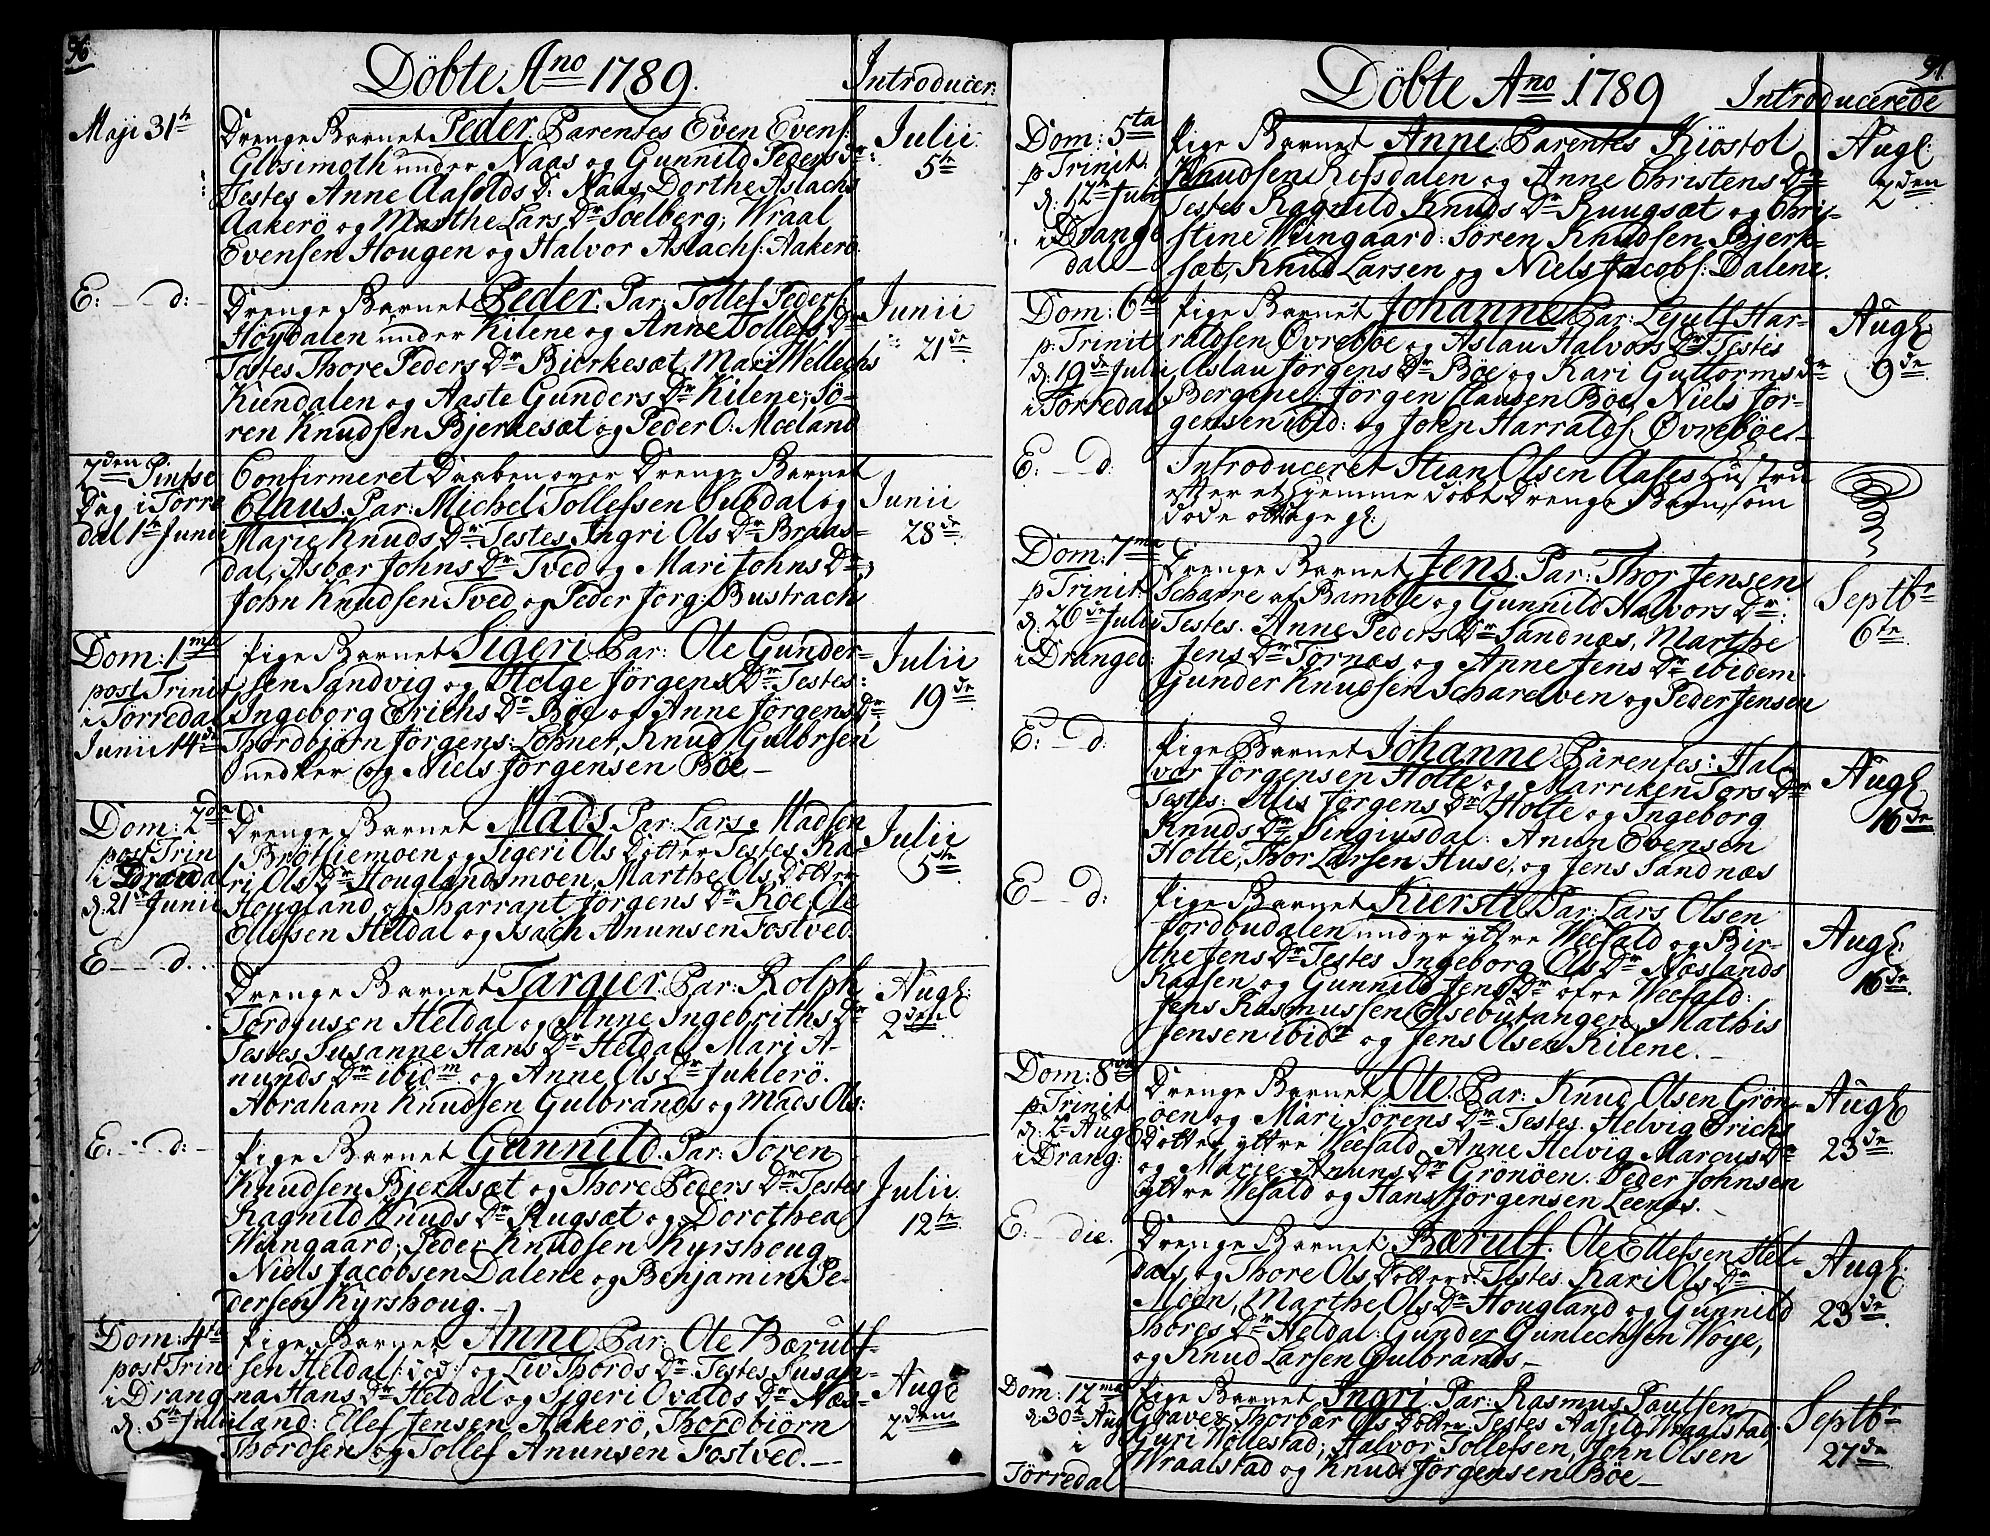 96
Döbte Ano 1789.
Introducer:
Maji 31te
Drenge Barnet Peder. Parentes Even Evens:
Glosimoth under Naas og Gunnild Peders Dr:
Testes Anne Aasolds D: Naas, Dorthe Aslachs
Aakerö og Marthe Lars Dr Soelberg; Wraal
Evensen Hougen og Halvor Aslachs: Aakerö.
Julii
5te
E: — d: —
Drenge Barnet Peder. Par: Tollef Peders:
Höydalen under Kilene og Anne Tollefs Dr
Testes Thore Peders Dr Bjerkesæt, Mari Wellechs
Kundalen og Aaste Gunders Dr Kilene; Sö-
ren Knudsen Bjerkesæt og Peder O: Moeland
Junii
21de
2den Pintse
Dag i Törre
dal 1te Junii
Confirmeret Daaben over Drenge Barnet
Claus. Par: Michel Tollefsen Suvdal og
Marie Knuds Dr. Testes Ingri Ols Dr Braas-
dal, Asbær Johns Dr Tved og Mari Johns Dr;
John Knudsen Tved og Peder Jörg: Bustrach
Junii
28de
Dom: 1ma
post Trinit
i Törredal
Junii 14de
Pige Barnet Sigeri. Par: Ole Gunder-
sen Sandvig og Helge Jörgens Dr. Testes:
Ingeborg Erichs Dr Böe og Anne Jörgens Dr,
Thordbjørn Jörgens: Lohner, Knud Gulbrsen
nedker og Niels Jörgensen Böe —
Julii
19de
Dom: 2da
post Trin
i Drangdal
d. 21de Junii
Drenge Barnet Mads. Par: Lars Madsen
Bröthiemoen og Sigeri Ols Dotter Testes Ka-
ri Ols Dr Houglandsmoen, Marthe Ols Dotter
Hougland og Tharrant Jörgens Dr Röe, Ole
Ellefsen Heldal og Isach Anunsen Fostved.
Julii
5te
E — d. . .
Drenge Barnet Targier. Par: Rolph
Tordsusen Heldal og Anne Ingebriths Dr
Testes Susanne Hans Dr Heldal, Mari A-
nunds Dr ibidm og Anne Ols Dr Juklerö.
Abraham Knudsen Gulbrands og Mads Ols:
Augl:
2den
E: — d: —
Pige Barnet Gunnild. Par: Sören
Knudsen Bjerkesæt og Thore Peders Dr Testes
Ragnild Knuds Dr Rugsæt og Dorothea
Wiingaard; Peder Knudsen Kyrshoug,
Niels Jacobsen Dalene og Benjamin Pe-
dersen Kyrshoug. —
Julii
12te
Dom: 4ta
post Trin
i Drang
d: 5te Julii
Pige Barnet Anne Par: Ole Bærulf-
sen Heldal /: död :/ og Liv Thords Dr Testes Susan-
na Hans Dr Heldal og Sigeri Ovalds Dr Næs-
land: Ellef Jensen Aakerö, Thordbiörn
Thordsen og Tollef Anunsen Fostved. —
Augl
2den
97
Döbte Ano 1789
Introducerede
Dom: 5ta
p Trinit:
d: 12te Juli
i Drange
dal —
Pige Barnet Anne. Parentes Kiöstol
Knudsen Reisdalen og Anne Christens Dr
Testes Ragnild Knuds Dr Ruugsæt og Chri-
stine Wiingaard: Sören Knudsen Bjerk-
sæt, Knud Larsen og Niels Jacobs: Dalene.
Augl:
2den
Dom: 6te
p: Trinit
d: 19de Julii
i Törredal
Pige Barnet Johanne Par: Lejulf Har-
raldsen Övreböe og Aslau Halvors Dr. Testes
Aslau Jörgens Dr Böe og Kari Guttorms dr
Bergene: Jörgen Clausen Böe, Niels Jör-
gensen ibid: og John Harralds: Övreböe —
Augl
9de
E: — d:
Introduceret Stean Olsen Aases Hustru
efter et hjemme döbt Drenge Barn, som
döde ottage gl:
Dom: 7ma
p Trinit:
d: 26de Julii
i Dranged:
Drenge Barnet Jens. Par: Thor Jensen
Schaare af Bamble og Gunnild Halvors Dr:
Testes. Anne Peders Dr Sandnæs, Marthe
Jens Dr Tørnæs og Anne Jens Dr ibidem:
Gunder Knudsen Scharelven og Peder Jensen
Septbr
6te
E: — d:
Pige Barnet Johanne Parentes: Hal-
vor Jörgensen Holte og Marriken Tors Dr
Testes: Alis Jörgens Dr Holte og Ingeborg
Knuds Dr Vingiusdal: Anun Evensen
Holte, Thor Larsen Huse, og Jens Sandnæs
Augl
16de
E — d:
Pige Barnet Kiersti. Par: Lars Olsen
Jordbudalen under yttre Weefald og Bir-
the Jens Dr Testes Ingeborg Ols Dr Noslands
Kaasen og Gunnild Jens Dr öfre Weefald:
Jens Rasmussen Elsebutangen, Mathis
Jensen ibidm og Jens Olsen Kilene. —
Augl:
16de
Dom: 8va
p Trinit
d: 2 Augl
i Drang:
Drenge Barnet Ole. Par: Knud Olsen Grön-
öen og Mari Sörens Dr. Testes. Helvig Erichs
Dotter yttre Weefald, Anne Helvig Marcus Dr
og Marie Anuns Dr Grönöen. Peder Johnsen
yttre Wefald og Hans Jörgensen Leenes. —
Augl
23de
E: — die.
Drenge Barnet Bærulf: Ole Ellefsen Hel-
dals og Thore Ols Dotter: Testes. Kari Ols Dr
Moen, Marthe Ols Dr Hougland og Gunnild
Thores Dr Heldal: Gunder Gunlechsen Woje,
og Knud Larsen Gulbrands —
Augl:
23de
Dom: 12ma
d: 30te Aug
i
Törredal
Pige Barnet Ingri. Par: Rasmus Paulsen
Graver, Thorbær Ols Dotter Testes Aaseld Wraalstad,
Guri Wöllestad; Halvor Tollefsen, John Olsen
Wraalstad og Knud Jörgensen Böe —
Septbr
27de